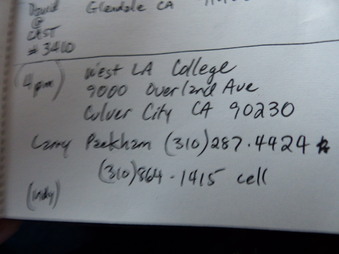 David Glendale CA
@
CAST
# 3410
4pm) West LA College
9000 Overland Ave
Culver City CA 90230
Larry Packham (310) 287.4424 *
(310) 864-1415 cell
(Indy)